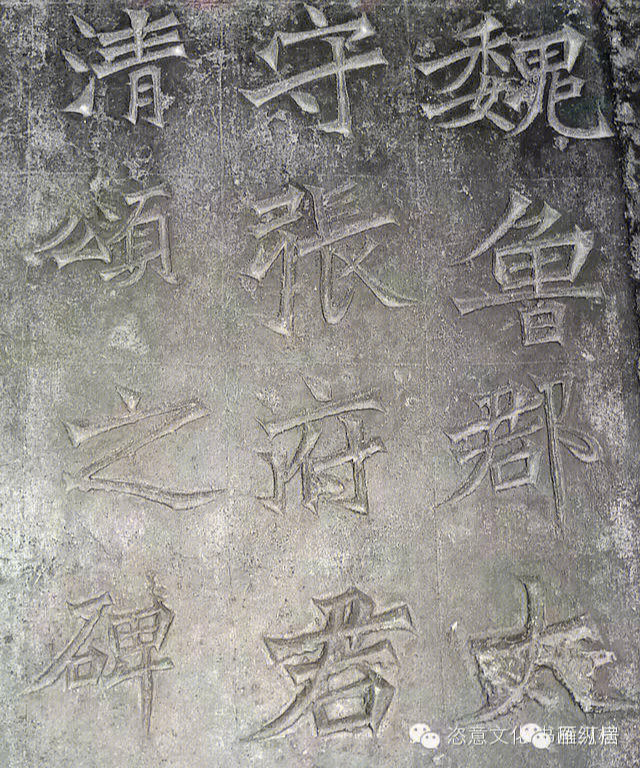 魏魯郡太
守張府君
清頌之碑
恣意文化